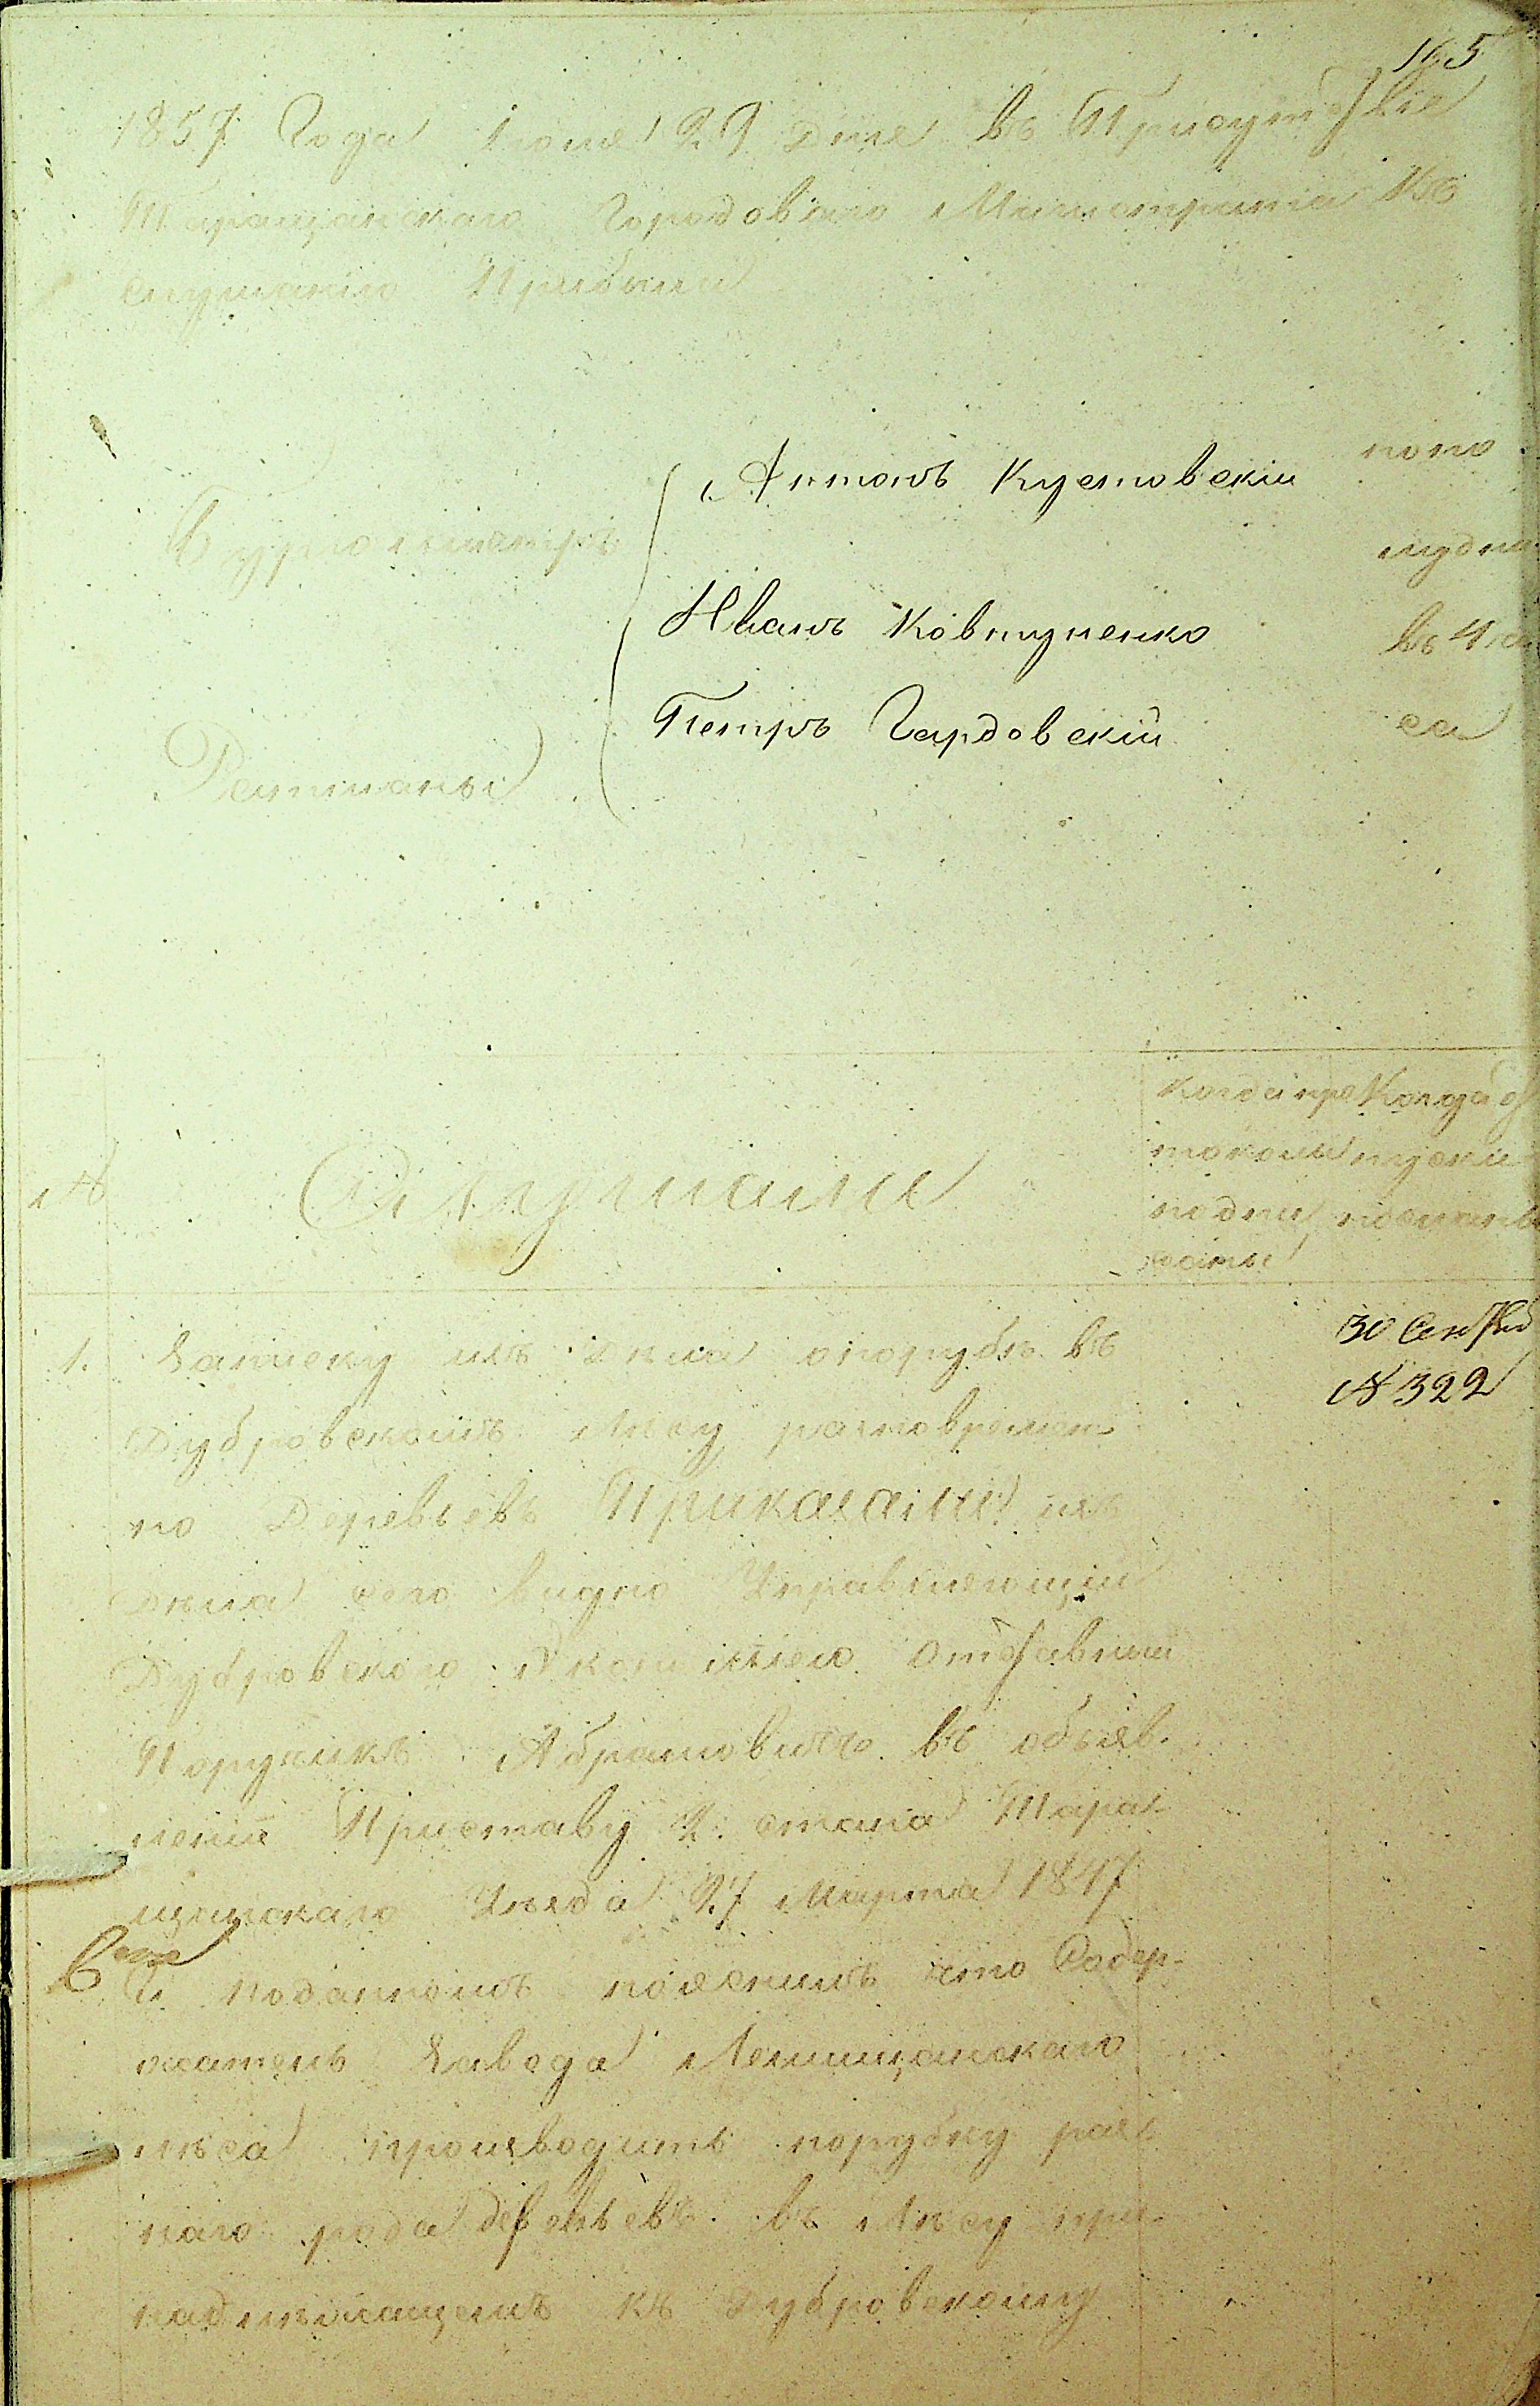 165
1857 Года Іюня 29 дня въ Присутствіе
Таращанскаго Городоваго Магистрата Къ
слушанію Прибыли
Антонъ Кустовскій
попо
Бургомистръ
Иванъ Ковтуненко
въ 4
Петръ Гардовскій
са
Ратманы
Когда про Когда
токолъ
подпи
саны
№ Слушали
30 Сен
№ 322
1. Записку изъ дѣла опорубѣ въ
Дубровскомъ Лѣсу разновремен
но Деревьевъ Приказали изъ
дѣла сего видно Управляющій
Дубровскою Экономіею Отставный
Порутчикъ Абрамовичъ въ объяв
леніи Приставу 2. стана Тара
щанскаго Уѣзда 27 Марта 1847
поданномъ пояснилъ что Содер-
жатель Завода Лешищанскаго
лѣса производитъ порубку раз
наго рода деревьевъ въ Лѣсу при
надлежащемъ къ Дубровскому